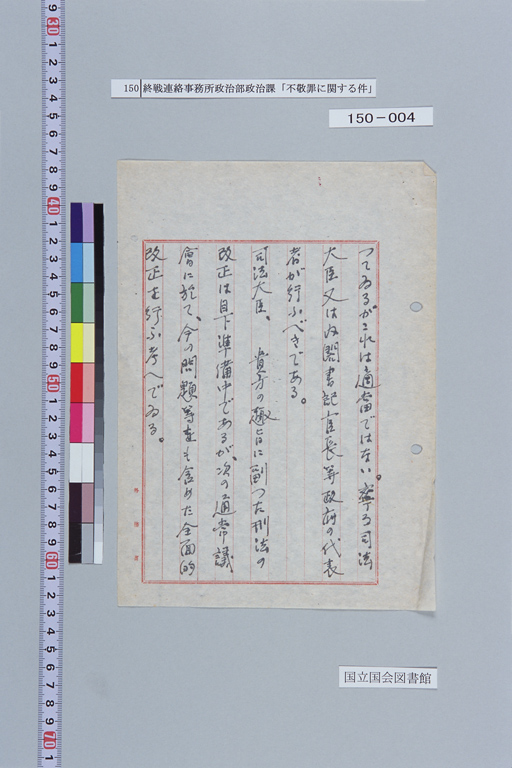 150 終戦連絡事務所政治部政治課「不敬罪に関する件」
150－004
つてゐるがこれは適当ではない。寧ろ司法
大臣又は内閣書記官長等政府の代表
者が行ふべきである。
司法大臣、貴方の趣旨に副つた刑法の
改正は目下準備中であるが、次の通常議
会に於て、今の問題等をも含めた全面的
改正を行ふ考へでゐる。
外務省
国立国会図書館